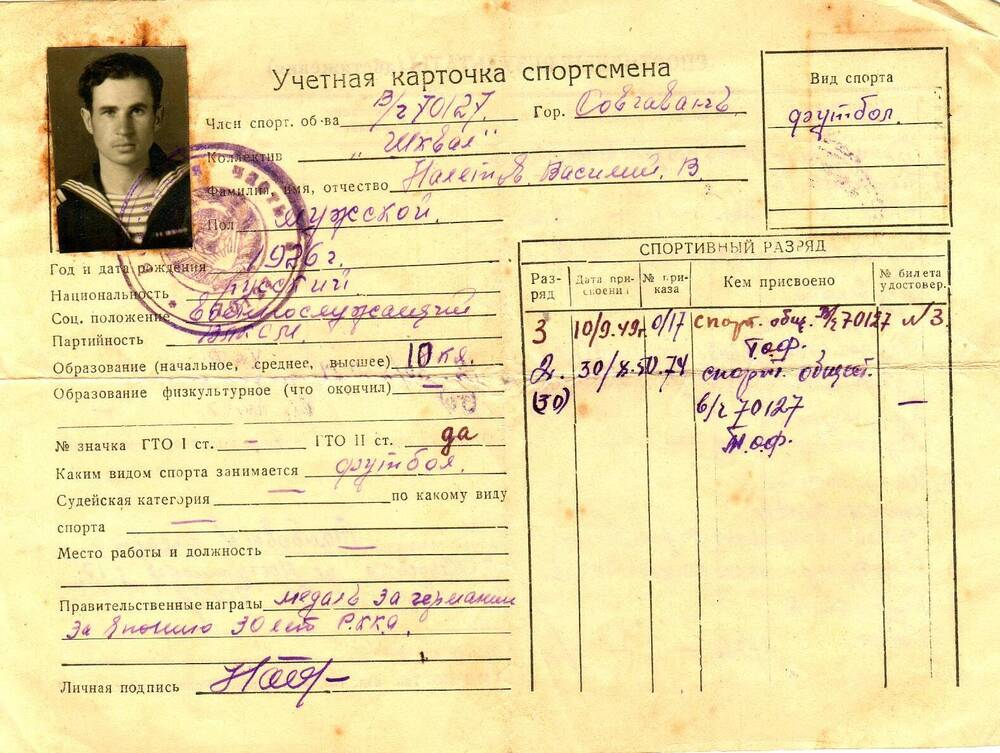 Учетная карточка спортсмена
Член спорт. об-ва в/ч 70127. Гор. Совгавань
Коллектив „Шквал"
Фамилия, имя, отчество Василий. В.
Пол мужской.
Год и дата рождения 1926 г.
Национальность русский
Соц. положение Военнослужащий
Партийность ВЛКСМ.
Образование (начальное, среднее, высшее) 10 кл.
Образование физкультурное (что окончил) —
№ значка ГТО I ст. — ГТО II ст. да
Каким видом спорта занимается футбол.
Судейская категория — по какому виду
спорта —
Место работы и должность —
Правительственные награды медаль За германию
За Японию 30 лет РККА,
Личная подпись
Вид спорта
футбол.
СПОРТИВНЫЙ РАЗРЯД
Раз-ряд Дата при-своения № при-каза Кем присвоено № билета удостовер.
3 10/9.49г. 0/17 Спорт. общ. в/ч 70127 №3.
Т.о.ф.
2. 30/X.50. 74 спорт. общест.
(30) в/ч 70127 —
Т.о.ф.